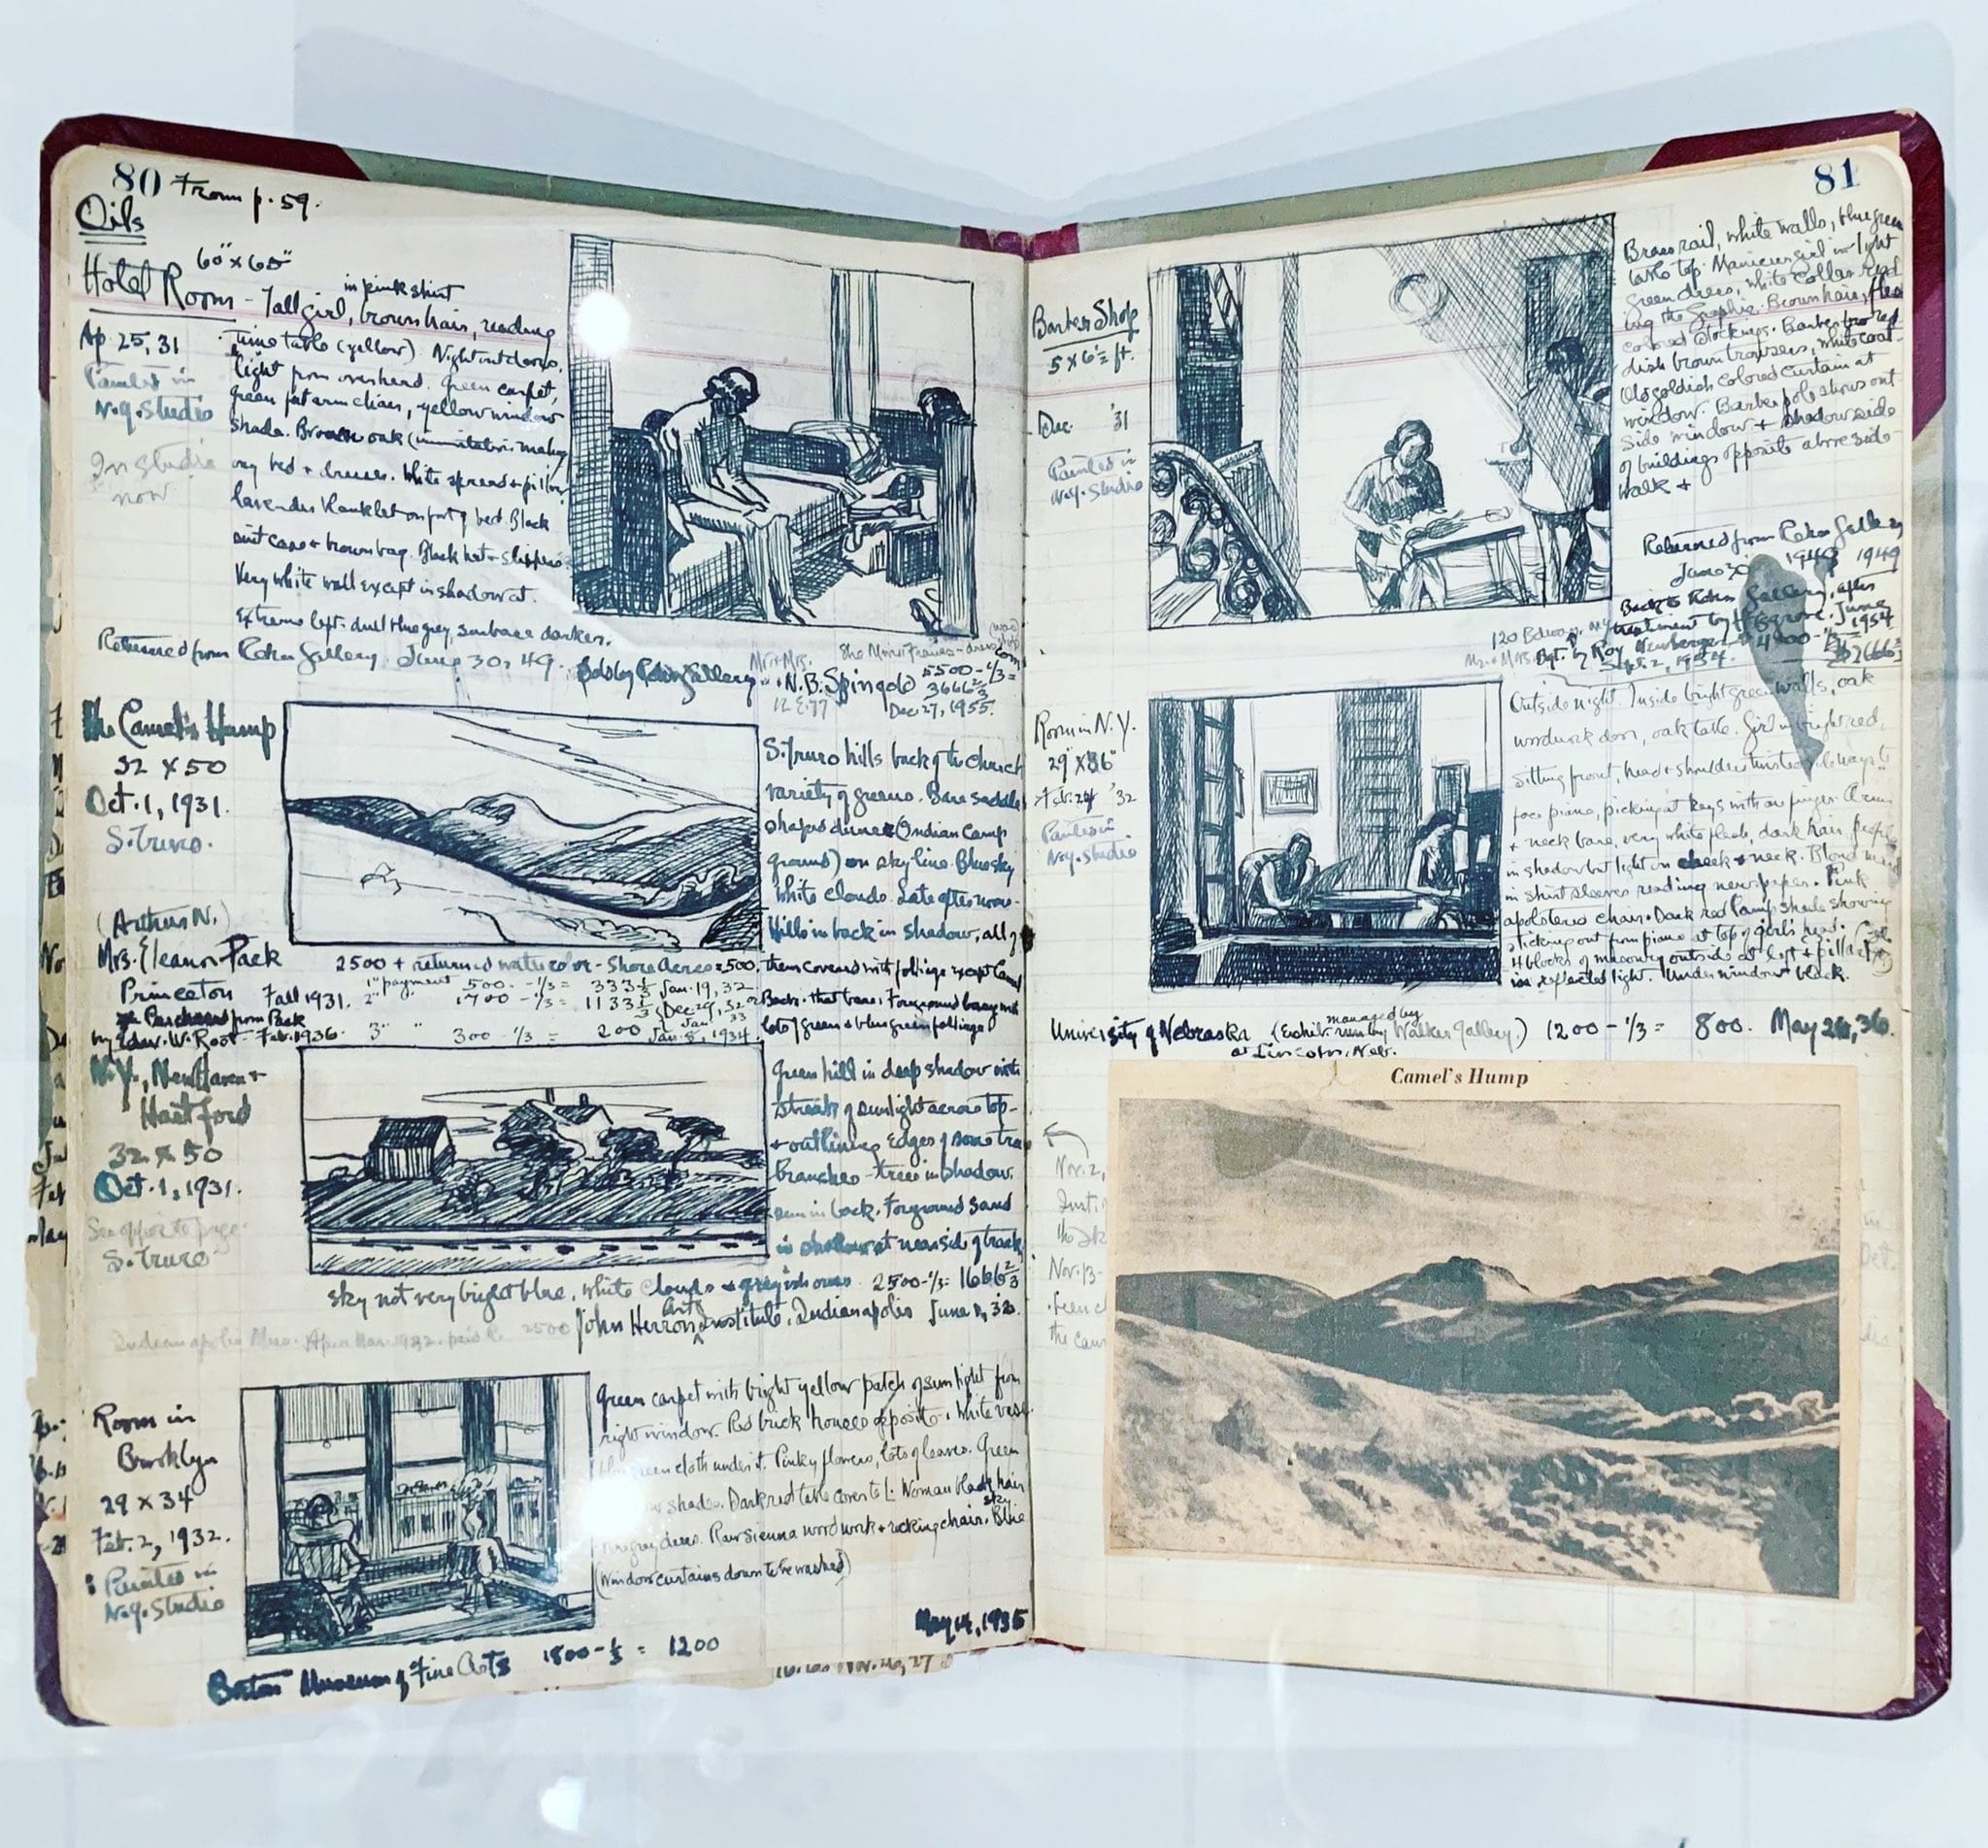 80 From p. 59.
Oils
60" x 65"
Hotel Room - Tall girl, brown hair, reading
in pink shirt
Ap. 25, 31
Painted in
N.Y. Studio
In studio
now
time table (yellow). Night outdoors.
light from overhead. Green carpet,
green fat arm chair, yellow window
shade. Brown oak (immitation mahog
any bed + dresser. White spread + pillow
lavender blanket on foot of bed. Black
suit case + brown bag. Black hat + slippers.
Very white wall except in shadow at
Extreme left - dull blue grey, surbase darker.
Returned from Rehn Gallery. June 30, 49.
Sold by Rehn Gallery
Mr. + Mrs.
N. B. Spingold
5500 - 1/3 =
3666 2/3
Dec 27, 1955.
The Camel's Hump
32 x 50
Oct. 1, 1931.
S. Truro.
S. Truro hills back of the church
variety of greens. Bare saddle
shaped dune (Indian Camp
ground) on sky line. Blue sky
White clouds. Late afternoon.
Hills in back in shadow, all of
them covered with foliage except Camel
Back - that bare. Foreground
lots of green + blue green foliage
(Arthur N.)
Mrs. Eleanor Pack
Princeton Fall 1931.
Purchased from Pack
by Edw. W. Root - Feb. 1936
2500 + returned watercolor - Shore Acres = 500,
1" payment 500. - 1/3 = 333 1/3 Jan. 19, 32
2" 1700 - 1/3 = 1133 1/3 Dec 29, 32 or
Jan. 33
3" " 300 - 1/3 = 200 Jan. 8, 1934.
N.Y., New Haven +
Hartford
32 x 50
Oct. 1, 1931.
See opposite page
S. Truro
Green hill in deep shadow with
streak of sunlight across top -
+ outlining edges of some tree
branches - trees in shadow.
sun in back. Forground sand
in shadow at near side of track
sky not very bright blue, white clouds + greyish ones 2500 - 1/3 = 1666 2/3
John Herron Arts Institute, Indianapolis June 2, 32.
2500
Room in
Brooklyn
29 x 34
Feb. 2, 1932.
Painted in
N.Y. Studio
Green carpet with bright yellow patch of sunlight from
right window. Red brick houses opposite. White vase
green cloth under it. Pinky flowers, lots of leaves. Green
shades. Dark red table cover to L. Woman black hair
grey dress. Raw Sienna wood work + rocking chair. Blue
sky
(Window curtains down to be washed)
May 14, 1935
Boston Museum of Fine Arts 1800 - 1/3 = 1200
81
Barber Shop
5 x 6 1/2 ft.
Dec. '31
Painted in
N.Y. Studio
Brass rail, white walls, blue green
table top. Manicure girl in light
green dress, white collar read
ing the Graphic. Brown hair, flesh
colored stockings. Barber
dish brown trousers, white coat.
Old goldish colored curtain at
window. Barber pole shows out
side window + shadow side
of buildings opposite above side
walk +
Returned from Rehn Gallery
June 30 1949 1949
Back to Rehn Gallery, after
treatment by June
1954
Bgt. by Roy Neuberger
Sept. 2, 1954.
Room in N.Y.
29" x 36"
Feb. 24 '32
Painted in
N.Y. Studio
Outside night. Inside bright green walls, oak
woodwork door, oak table. Girl in bright red,
sitting front, head + shoulders twisted sideways to
face piano, picking at keys with one finger. Arms
+ neck bare, very white flesh, dark hair, profile
in shadow but light on cheek + neck. Blond man
in shirt sleeves reading newspaper. Pink
apolstered chair. Dark red lamp shade showing
sticking out from piano at top of girls head.
4 blocks of masonry outside at left + pillar
in reflected light. Under window black.
University of Nebraska (Exhib. run by managed by Walker Gallery.) 1200 - 1/3 = 800. May 26, 36.
at Lincoln, Neb.
Camel's Hump
Nov. 2,
Nov. 13 -